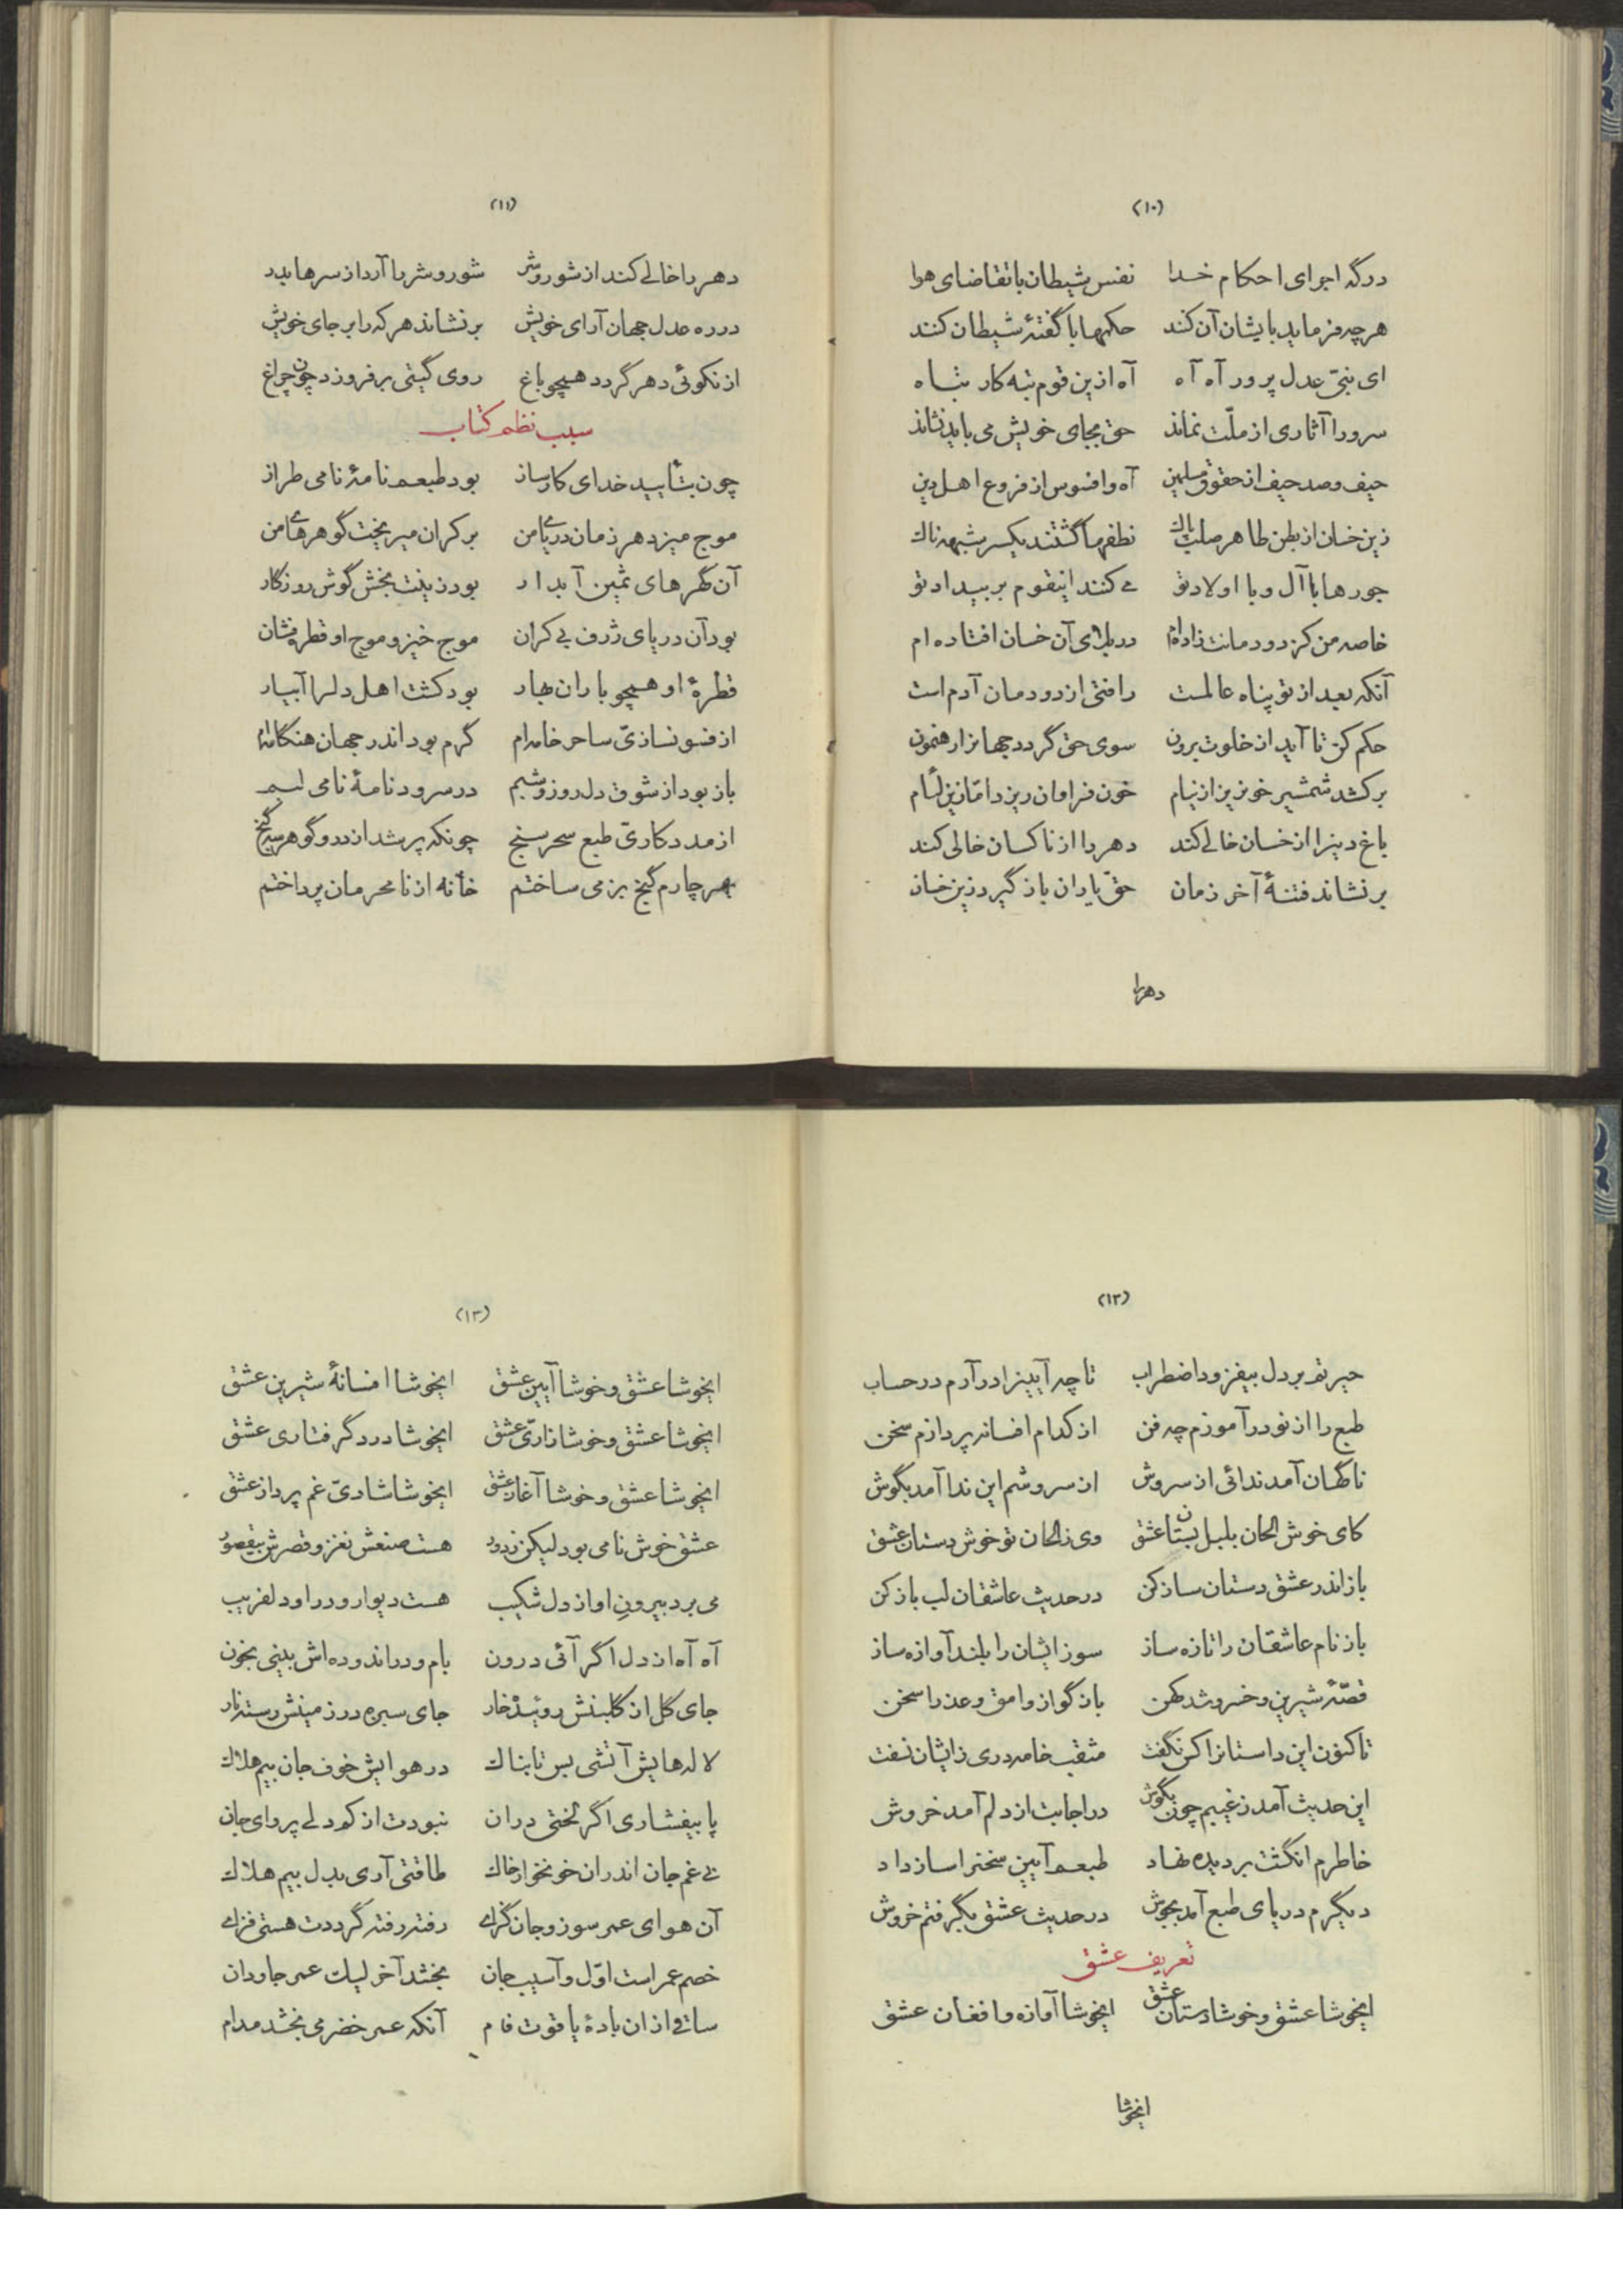 (۱۰)
درگه اجرای احکام خدا نفس شیطان با تقاضای هوا
هر چه فرماید بایشان آن کند حکمها با گفتهٔ شیطان کنند
ای نبیّ عدل پرور آه آه آه ازین قوم تبه کار تباه
سرورا آثاری از ملّت نماند حق بجای خویش می باید نشاند
حیف و صد حیف از حقوق مسلمین آه و افسوس از فروع اهل دین
زین خسان از بطن طاهر صلب پاك نطفه‌ها گشتند یکسر شبهه ناك
جورها با آل و با اولاد تو می کنند اینقوم بر بیداد تو
خاصه من کز دودمانت زاده‌ام در بلای آن خسان افتاده ام
آنکه بعد از تو پناه عالمست رافتی از دودمان آدم است
حکم کن تا آید از خلوت برون سوی حق گردد جهانرا رهنمون
برکشد شمشیر خونریز از نیام خون فراوان ریزد امّا زین لئام
باغ دینرا از خسان خالی کند دهر را از ناکسان خالی کند
برنشاند فتنهٔ آخر زمان حقّ یاران باز گیرد زین خسان
دهررا
(۱۱)
دهر را خالی کند از شور و شر شور و شر را آرد از سرها بدر
در ره عدل جهان آرای خویش برنشاند هر که را بر جای خویش
از نکوئی دهر گردد همچو باغ روی گیتی برفروزد چون چراغ
سبب نظم کتاب
چون بتأیید خدای کارساز بود طبعم نامهٔ نامی طراز
موج میزد هر زمان دریای من بر کران میریخت گوهرهای من
آن گهرهای ثمین آبدار بود زینت بخش گوش روزگار
بود آن دریای ژرف بی کران موج خیز و موج او قطره فشان
قطرهٔ او همچو باران بهار بود کشت اهل دلرا آبیار
از فسونسازیّ ساحر خامه‌ام گرم بود اندر جهان هنگامه‌ام
باز بود از شوق دل روز و شبم در سرود نامهٔ نامی لبم
از مددکاریّ طبع سحر سنج چونکه پر شد از در و گوهر سه گنج
بهر چارم گنج بزمی ساختم خانه از نامحرمان پرداختم
(۱۲)
حیرتم بر دل بیفزود اضطراب تا چه آیینرا درآرم در حساب
طبع را از نو درآموزم چه فن از کدام افسانه پردازم سخن
ناگهان آمد ندائی از سروش از سروشم این ندا آمد بگوش
کای خوش الحان بلبل بستان عشق وی ز الحان تو خوش دستان عشق
باز اندر عشق دستان ساز کن در حدیث عاشقان لب باز کن
باز نام عاشقان را تازه ساز سوز ایشان را بلند آوازه ساز
قصّهٔ شیرین و خسرو شد کهن باز گو از وامق و عذرا سخن
تا کنون این داستانرا کس نگفت مثقب خامه دری زایشان نسفت
این حدیث آمد ز غیبم چون بگوش در اجابت از دلم آمد خروش
خاطرم انگشت بر دیده نهاد طبعم آیین سخنرا ساز داد
دیگرم دریای طبع آمد بجوش در حدیث عشق بگرفتم خروش
تعریف عشق
ایخوشا عشق و خوشا دستان عشق ایخوشا آوازه و افغان عشق
ایخوشا
(۱۳)
ایخوشا عشق و خوشا آیین عشق ایخوشا افسانهٔ شیرین عشق
ایخوشا عشق و خوشا زاریّ عشق ایخوشا درد گرفتاری عشق
ایخوشا عشق و خوشا آغاز عشق ایخوشا شادیّ غم پرداز عشق
عشق خوش نامی بود لیکن ز دور هست صنعش نغز و قصرش بیقصور
می برد بیرونِ او از دل شکیب هست دیوار و در او دلفریب
آه آه از دل اگر آئی درون بام و در اندوده‌اش بینی بخون
جای گل از گلبنش روئیده خار جای سبزه در زمینش رسته نار
لاله‌هایش آتشی بس تابناك در هوایش خوف جان بیم هلاك
پا بیفشاری اگر لختی دران نبودت از کم دلی پروای جان
بی غم جان اندران خونخوار خاك طاقتی آری بدل بیم هلاك
آن هوای عمر سوز و جان گزای رفته رفته گرددت هستی فزای
خصم عمر است اوّل و آسیب جان بخشد آخر لیك عمر جاودان
ساقی از ان بادهٔ یاقوت فام آنکه عمر خضر می بخشد مدام